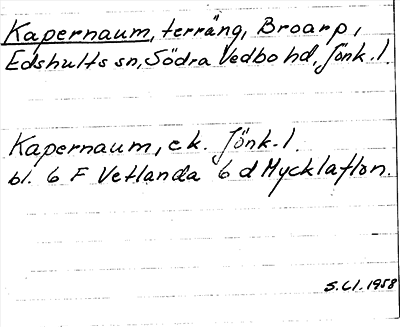 Kapernaum, terräng, Broarp,
Edshults sn, Södra Vedbo hd, Jönk. l.
Kapernaum, ek. Jönk. l.
bl. 6 F Vetlanda 6 d Mycklaflon.
S.Cl. 1958